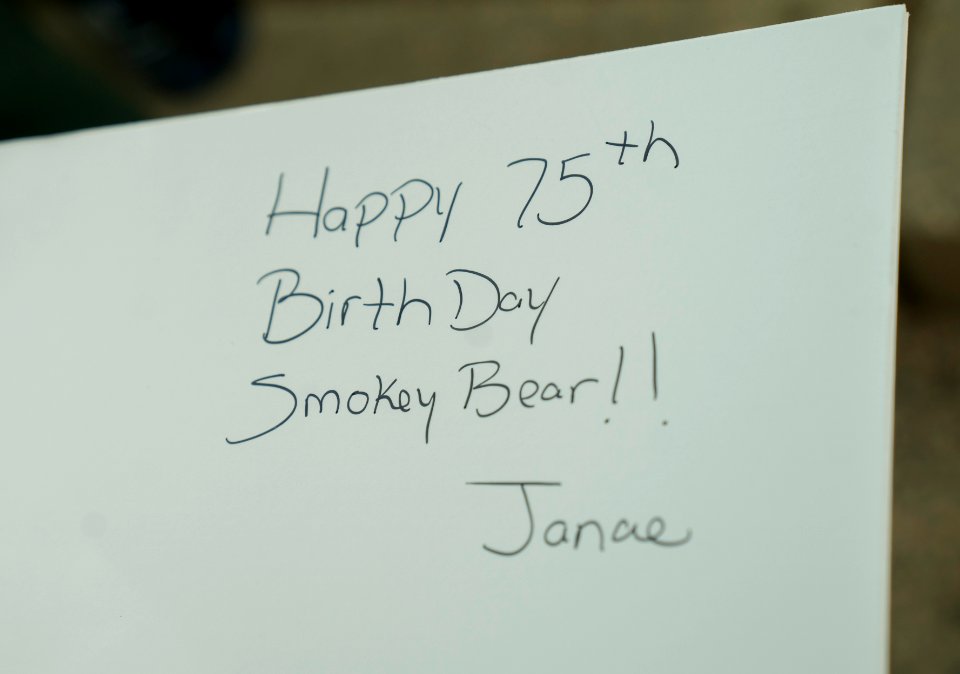 Happy 75th
Birth Day
Smokey Bear!!
Janae